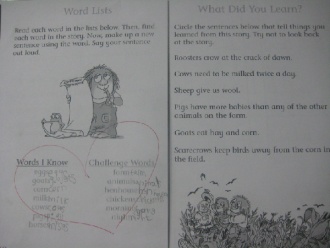 Word Lists
Read each word in the lists below. Then, find
each word in the story. Now, make up a new
sentence using the word. Say your sentence
out loud.
Words I Know
Challenge Words
What Did You Learn?
Circle the sentences below that tell things you
learned from this story. Try not to look back
at the story.
Roosters crow at the crack of dawn.
Cows need to be milked twice a day.
Sheep give us wool.
Pigs have more babies than any of the other
animals on the farm.
Goats eat hay and corn.
Scarecrows keep birds away from the corn in
the field.